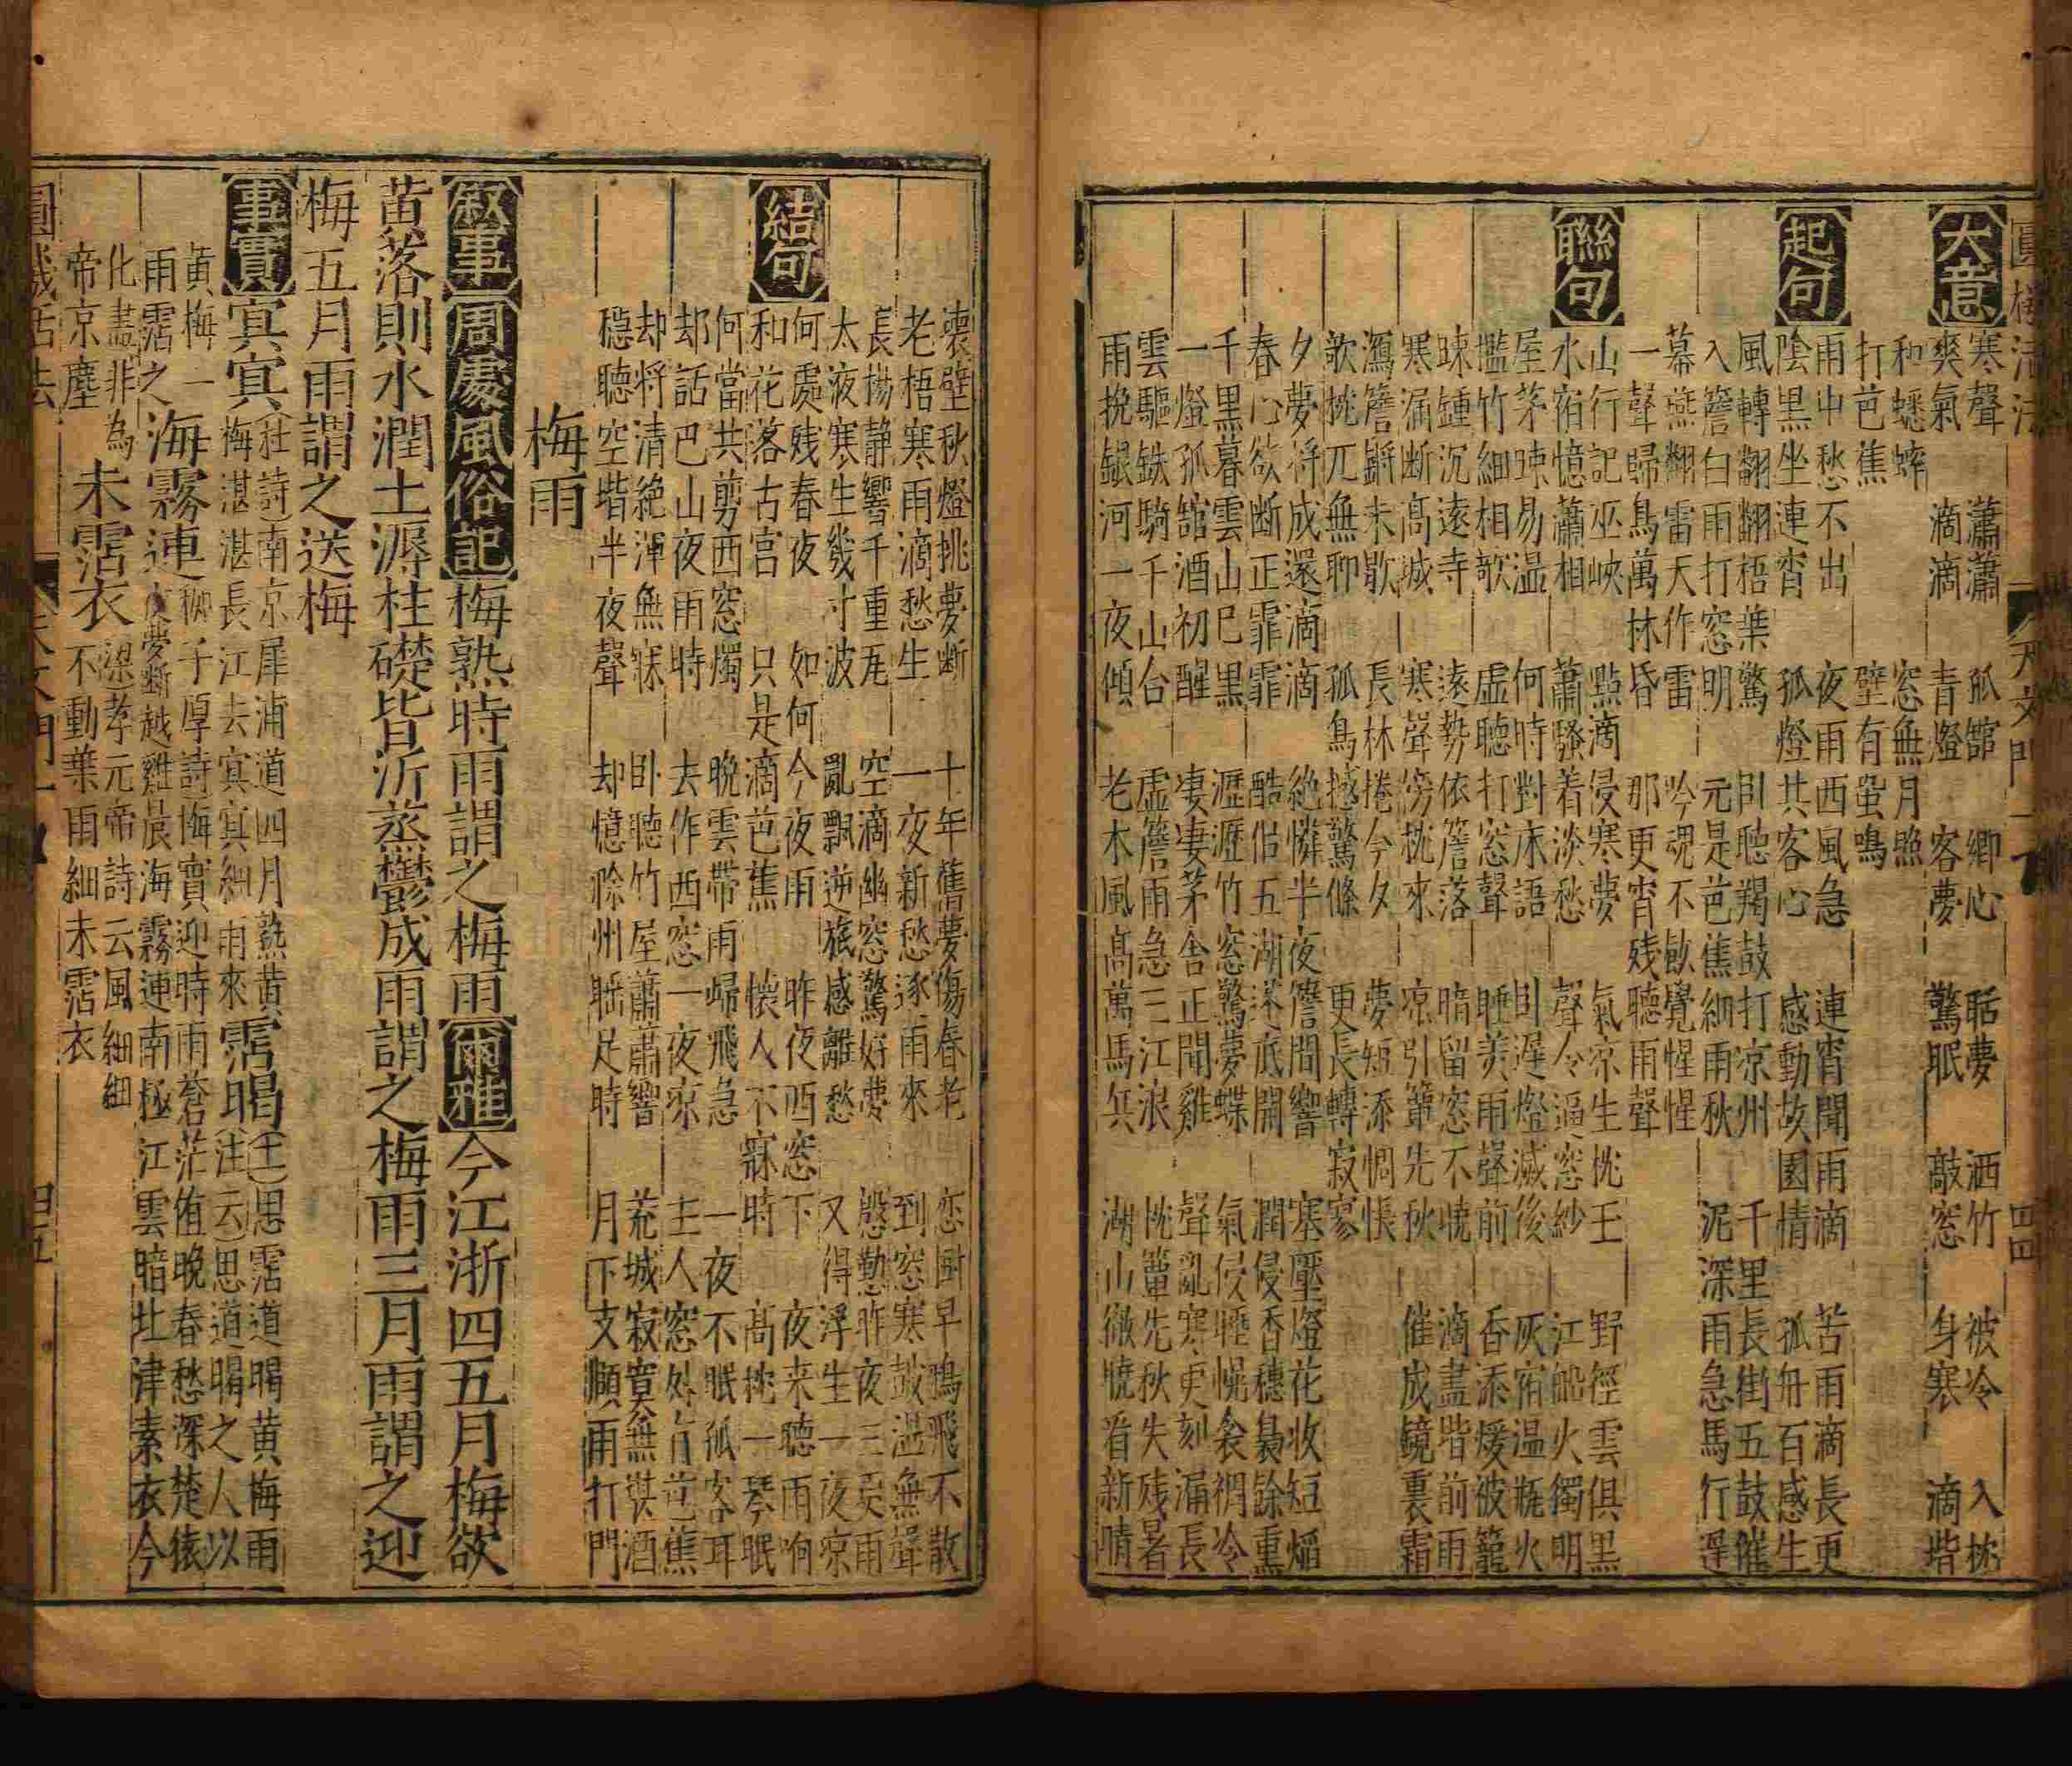 圓機活法　天文門一　四四
大意
寒聲　蕭蕭　孤館　鄉心　聒夢　洒竹　被冷　入枕
爽氣　滴滴　青燈　客夢　驚眠　敲窓　身寒　滴堦
和蟋蟀　窓無月照
打芭蕉　壁有蛩鳴
起句
雨中愁不出　夜雨西風急　連宵聞雨滴　苦雨滴長更
陰黒坐連宵　孤燈共客心　感動故園情　孤舟百感生
風轉翻翻梧葉驚　臥聽羯鼓打凉州　千里長街五鼓催
入簷白雨打窓明　元是芭蕉細雨秋　泥深雨急馬行遲
幕燕翻雷天作雷　吟魂不斂覺惺惺
一聲歸鳥萬林昏　那更宵残聽雨聲
聯句
山行記巫峽　點滴侵寒夢　氣凉生枕玉　野徑雲俱黒
水宿憶蕭相　蕭騷着淡愁　聲令逼窓紗　江船火獨明
屋茅疎易温　何時對床語　臥遲燈滅後　灰宿温瓶火
檻竹細相欹　虚聽打窓聲　睡美雨聲前　香添煖被籠
疎鍾沉遠寺　遠勢依簷落　暗留窓不曉　滴盡堦前雨
寒漏断高城　寒聲傍枕來　凉引簟先秋　催成鏡裏霜
瀉簷鏘未歇　長林捲今夕　夢短添惆悵
欹挑兀無聊　孤鳥撼驚條　更長轉寂寥
夕夢将成還滴滴　絶憐半夜簷間響　塞壓燈花收短焰
春心欲断正霏霏　酷侣五湖迷底開　潤侵香穗裊餘熏
千黒暮雲山已黒　瀝瀝竹窓驚夢蝶　氣侵睡幌衾裯冷
一燈孤舘酒初醒　凄凄茅舍正聞雞　聲亂寒更刻漏長
雲驅鉄騎千山台　虚簷雨急三江浪　枕簟先秋失残暑
雨挽銀河一夜傾　老木風高萬馬兵　湖山徹曉看新晴
壊壁秋燈挑夢断　十年舊夢傷春老　恋厨早鴈飛不散
老梧寒雨滴愁生　一夜新愁逐雨來　到窓寒皷温無聲
長楊静響千重瓦　空滴幽窓驚好夢　慇勤昨夜三更雨
太液寒生幾寸波　亂飄逆旅感離愁　又得浮生一夜凉
結句
何處残春夜　如何今夜雨　昨夜西窓下　夜来聽雨响
和花落古宫　只是滴芭蕉　懐人不寐時　高枕一琴眠
何當共剪西窓燭　晩雲帶雨歸飛急　一夜不眠孤客耳
却話巴山夜雨時　去作西窓一夜凉　主人窓外有芭蕉
却将清絶渾無寐　卧聽竹屋蕭蕭響　荒城寂寞無供酒
穏聽空堦半夜聲　却憶滁州睡足時　月下支頤雨打門
梅雨
叙事　周處風俗記　梅熟時雨謂之梅雨　爾雅　今江浙四五月梅欲
黄落則水潤土溽柱礎皆沂蒸鬱成雨謂之梅雨三月雨謂之迎
梅五月雨謂之送梅
事實　㝠㝠　杜詩南京犀浦道四月熟黄
梅湛湛長江去㝠㝠細雨來　霑暍　王思霑道暍黄梅雨
注云思道暍之人以
黄梅一
雨霑之　海霧連　柳子厚詩梅實迎時雨蒼茫值晩春愁深楚猿
夜夢断越雞晨海霧連南極江雲暗北津素衣今
化盡非為
帝京塵　未霑衣　梁孝元帝詩云風細細
不動葉雨細未霑衣
圓機活法　天文門一　四五